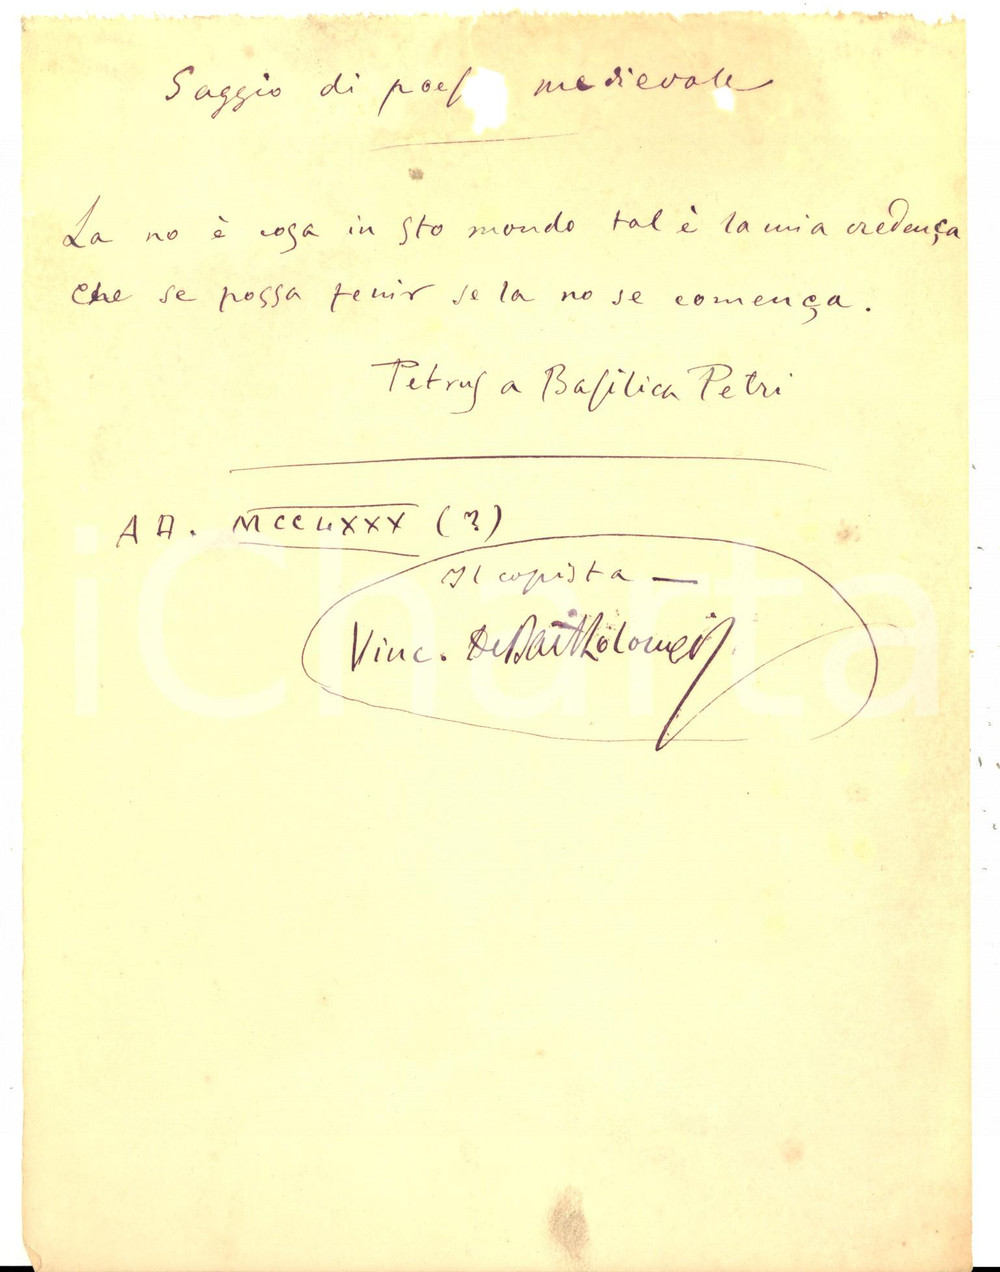 Saggio di poes medievale
La no è cosa in sto mondo tal è la mia credença
che se possa fenir se la no se comença.
Petrus a Basilica Petri
A D. MCCLXXX (?)
Il copista —
Vinc. De Bartholomeis
iCharta